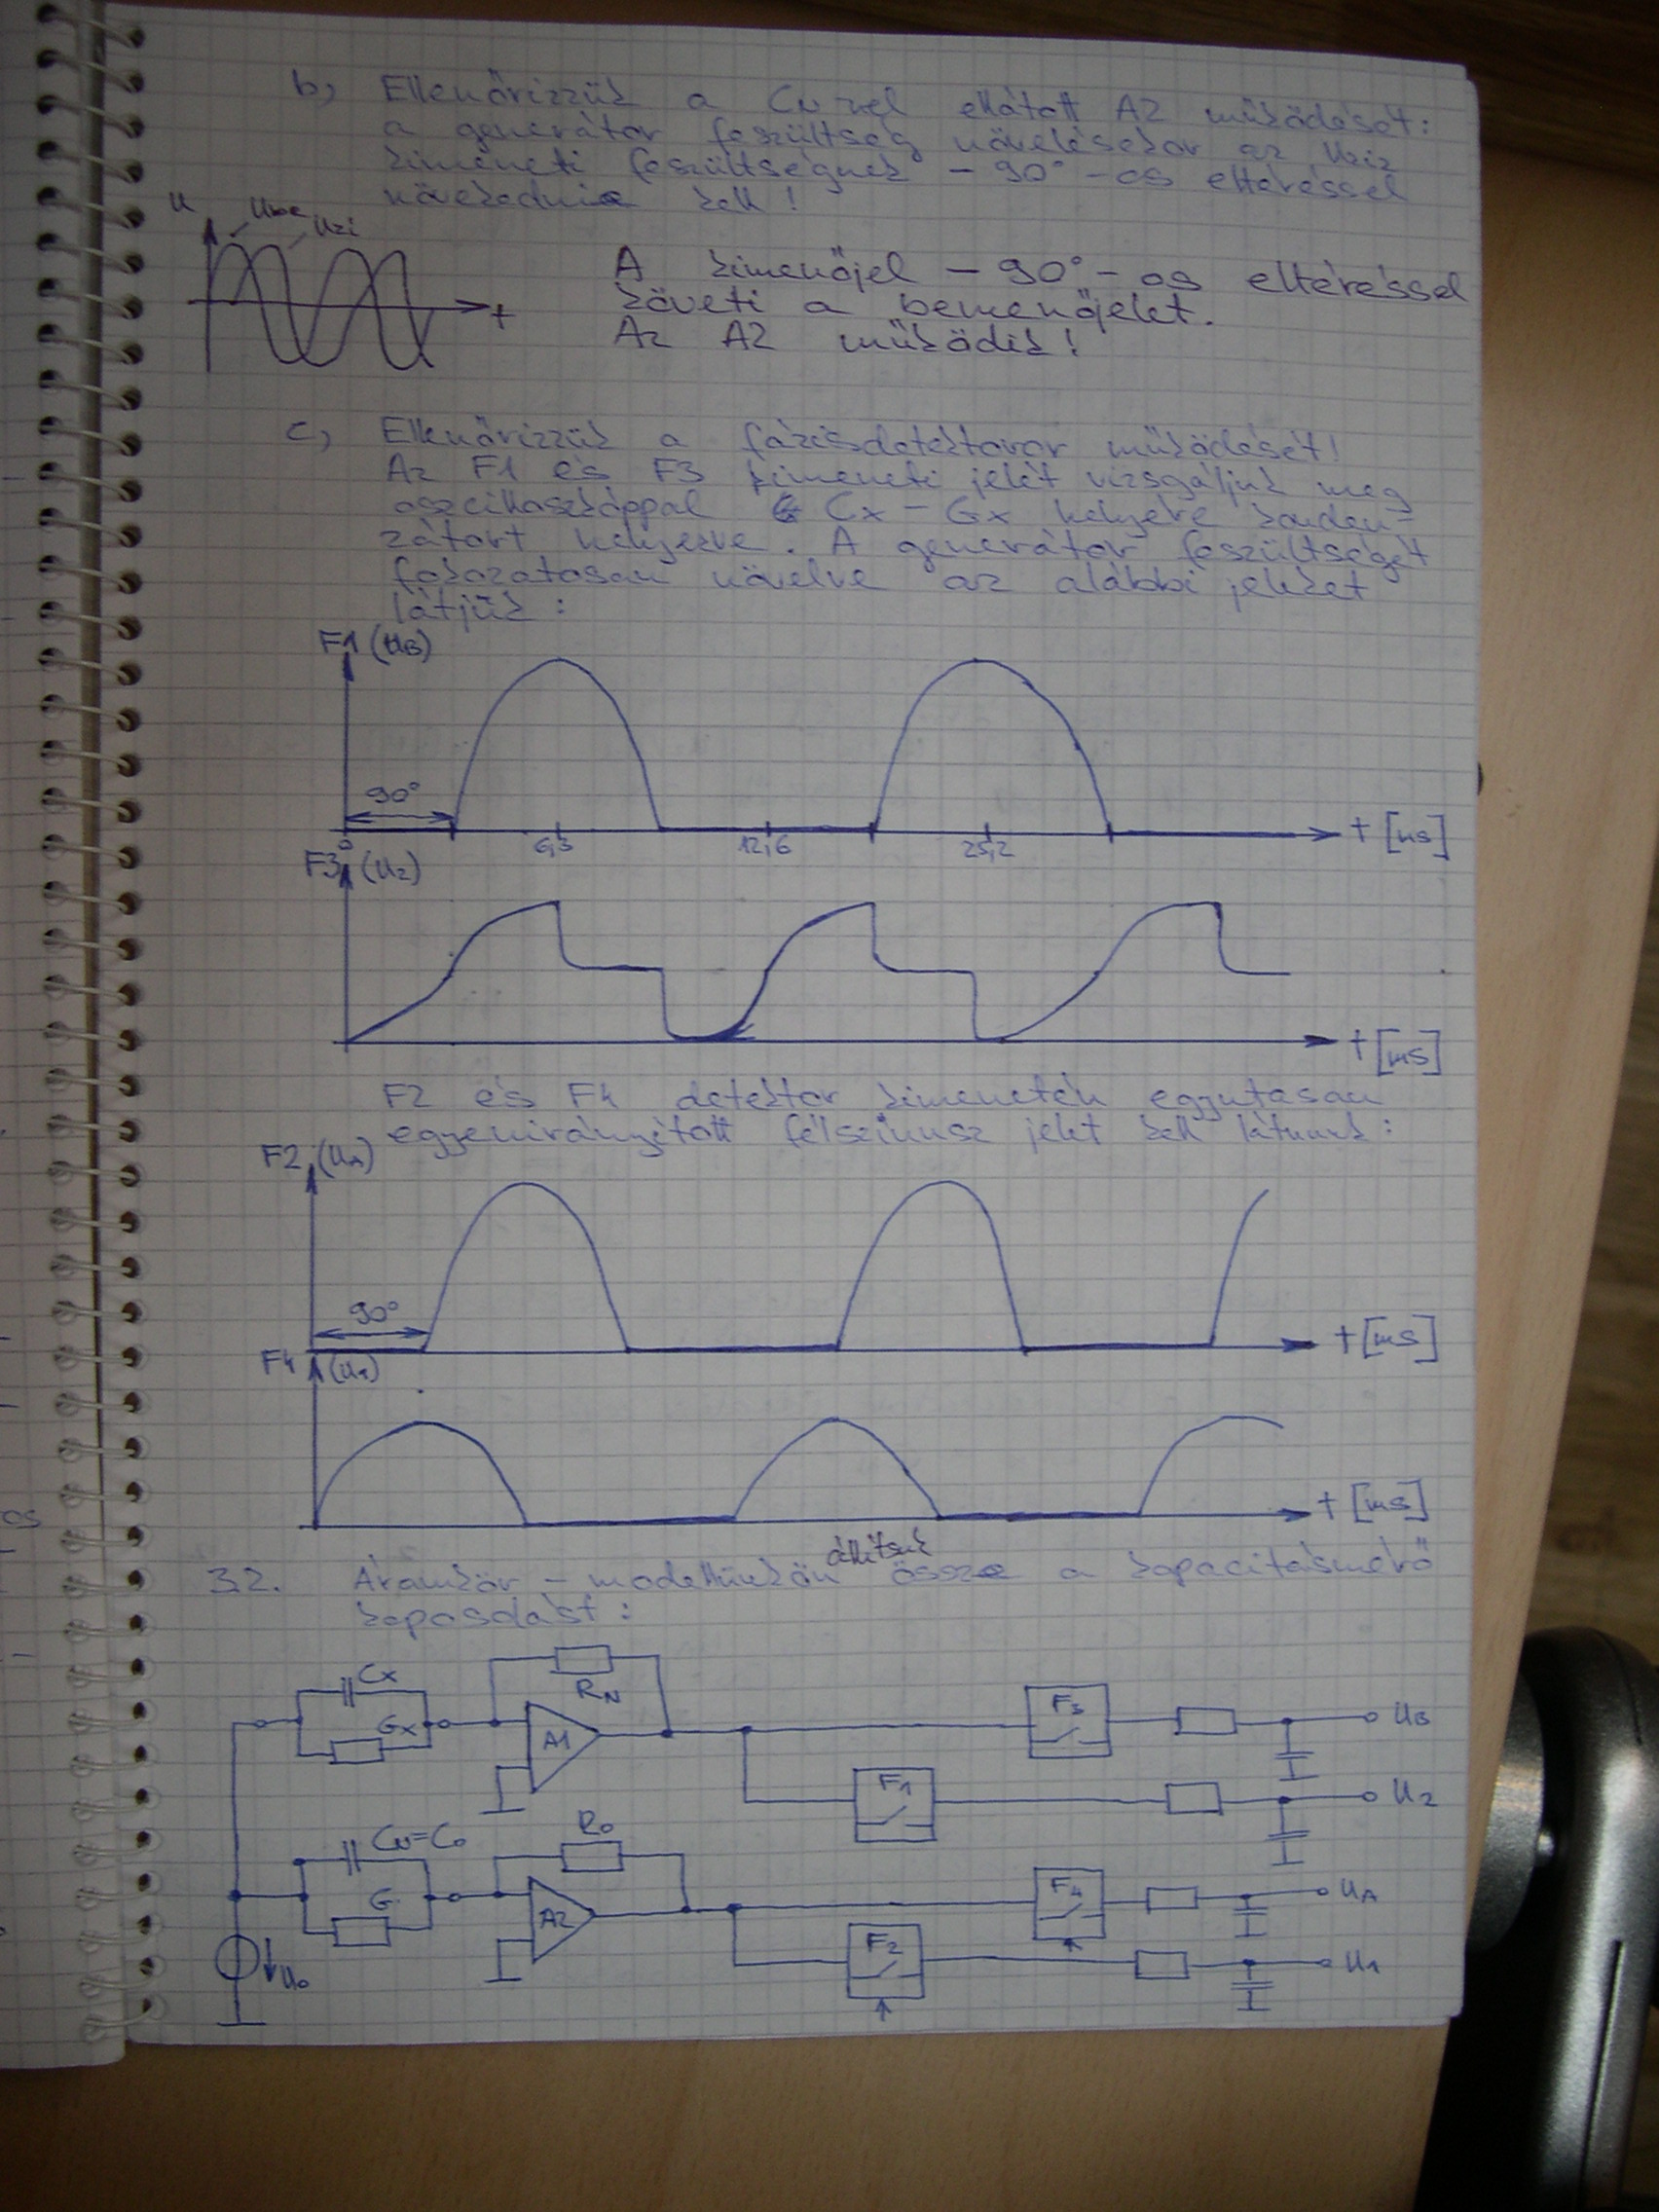 b, Ellenőrizzük a CN-nel ellátott A2 működését:
a generátor feszültség növelésekor az Uki
kimeneti feszültségnek -90°-os eltéréssel
növekednie kell!
U
Ube
Uki
t
A kimenőjel -90°-os eltéréssel
követi a bemenőjelet.
Az A2 működik!
c, Ellenőrizzük a fázisdetektorok működését!
Az F1 és F3 kimeneti jelét vizsgáljuk meg
oszcilloszkóppal Cx-Gx helyére konden-
zátort helyezve. A generátor feszültségét
fokozatosan növelve az alábbi jeleket
látjuk:
F1 (UB)
90°
0
6,3
12,6
25,2
t [ms]
F3 (U2)
t [ms]
F2 és F4 detektor kimenetén egyutasan
egyenirányított félszinusz jelet kell látnunk:
F2 (UA)
90°
t [ms]
F4 (U1)
t [ms]
állítsuk
3.2. Áramkör-modellünkön össze a kapacitásmérő
kapcsolást:
Cx
RN
Gx
A1
F3
UB
F1
U2
CN=C0
R0
G
A2
F4
UA
F2
U1
U0